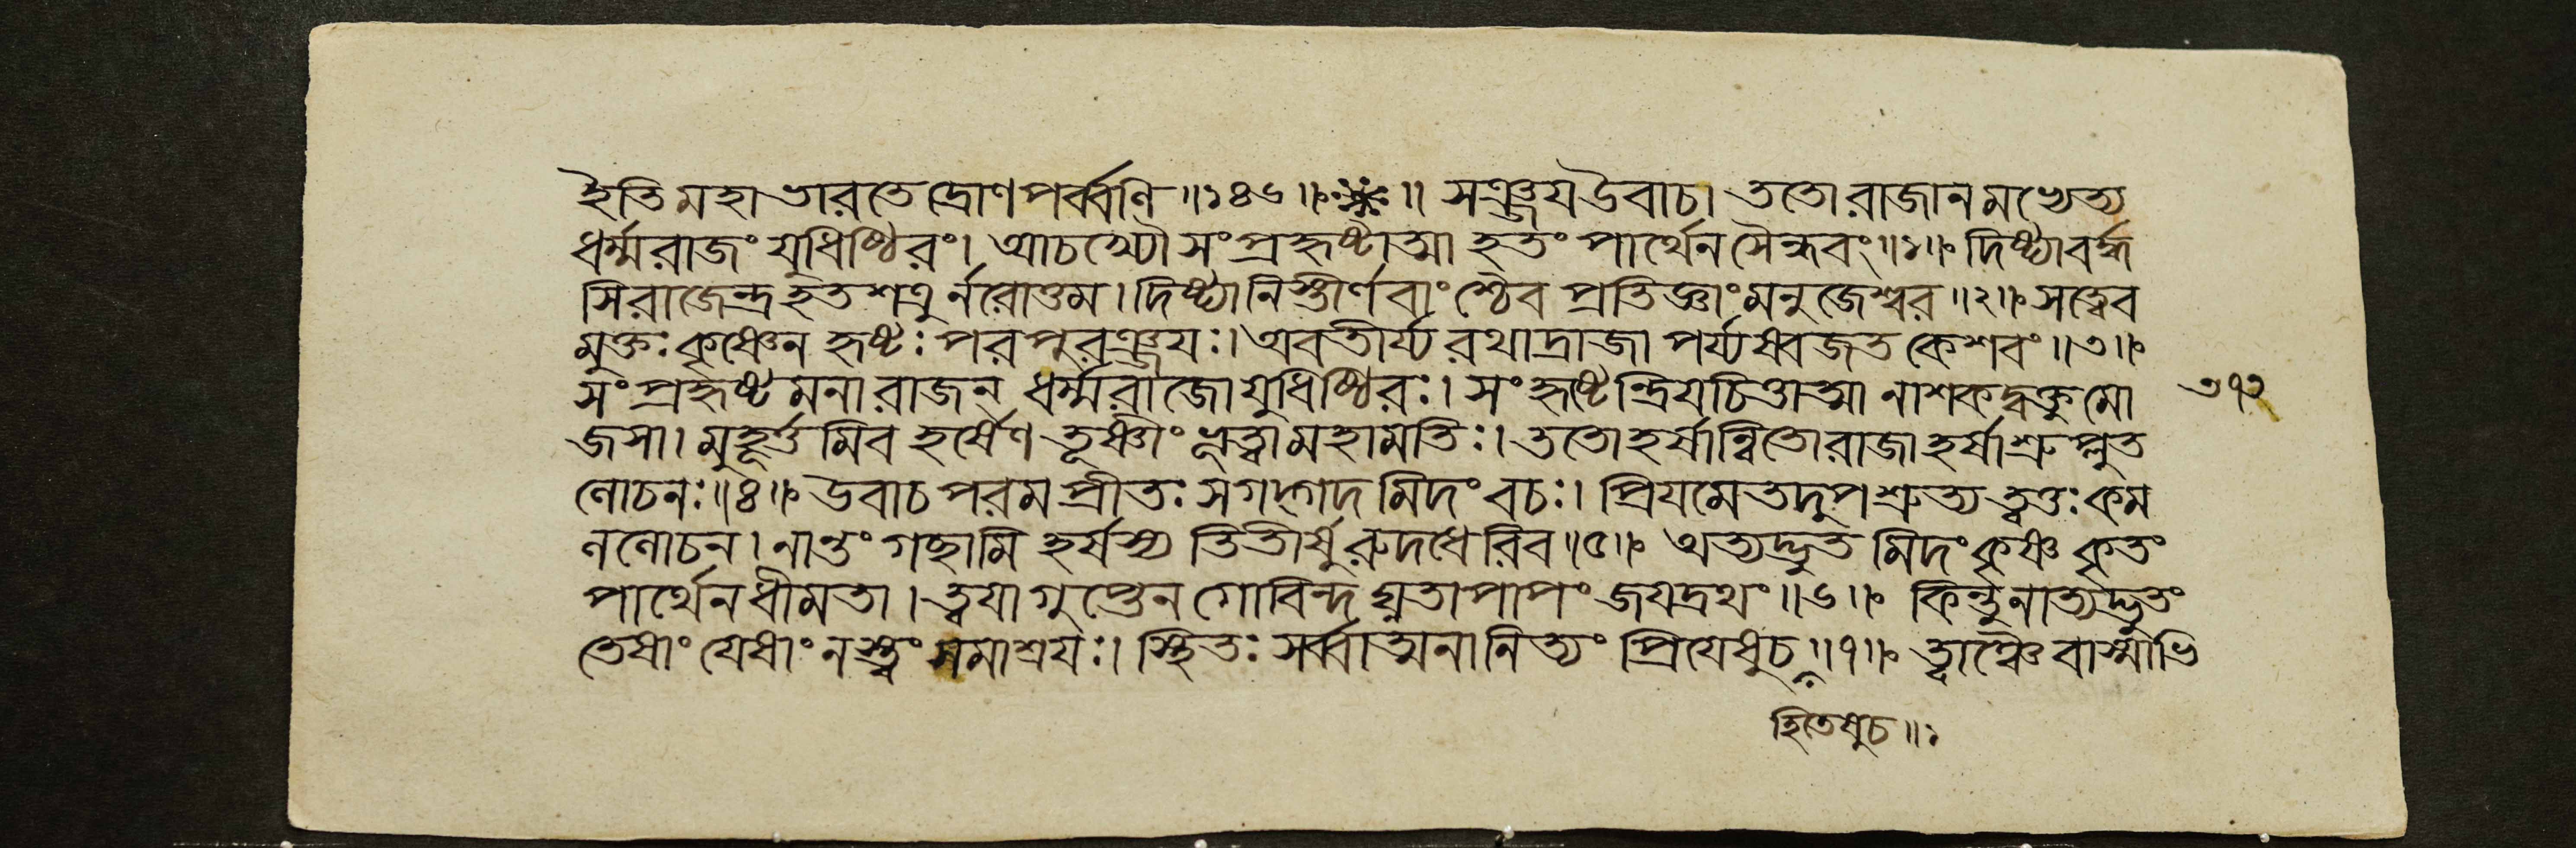 ইতিমহাভারতেদ্রোণপর্ব্বণি॥১৪৬॥ঃ❋ঃ॥ সঞ্জয়উবাচ। ততোরাজানমভ্যেত্য
ধর্ম্মরাজং যুধিষ্ঠিরং। আচখ্যৌ সংপ্রহৃষ্টাত্মা হতং পার্থেনসৈন্ধবং॥১॥ঃ দিষ্ট্যাবর্দ্ধ
সিরাজেন্দ্র হতশত্রুর্নরোত্তম। দিষ্ট্যানিস্তীর্ণবাংশ্চৈব প্রতিজ্ঞাংমনুজেশ্বর॥২॥ঃ সত্বেব
মুক্তঃ কৃষ্ণেন হৃষ্টঃ পরপুরঞ্জয়ঃ। অবতীর্য্য রথাদ্রাজা পর্য্যষ্বজত কেশবং॥৩॥ঃ
সংপ্রহৃষ্টমনারাজন্ ধর্ম্মরাজোযুধিষ্ঠিরঃ। সংহৃষ্টেন্দ্রিয়চিত্তাত্মা নাশকদ্বক্তুমো
জসা। মুহূর্ত্তমিব হর্ষেণ তূষ্ণীং ভূত্বামহামতিঃ। ততোহর্ষান্বিতোরাজা হর্ষাশ্রুপ্লুত
লোচনঃ॥৪॥ঃ উবাচ পরমপ্রীতঃ সগদ্গদমিদং বচঃ। প্রিয়মেতদুপশ্রুত্য ত্বত্তঃ কম
ললোচন। নান্তং গচ্ছামি হর্ষস্য তিতীর্ষুরুদধেরিব॥৫॥ঃ অত্যদ্ভুতমিদং কৃষ্ণ কৃতং
পার্থেনধীমতা। ত্বয়াগুপ্তেনগোবিন্দ ঘ্নতাপাপং জয়দ্রথং॥৬॥ঃ কিন্তুনাত্যদ্ভুতং
তেষাং যেষাং নস্ত্বং সমাশ্রয়ঃ। স্থিতঃ সর্ব্বাত্মনানিত্যং প্রিয়েষুচ॥৭॥ঃ ত্বাঞ্চৈবাস্মাভি
৩৭২
হিতেষুচ॥ঃ